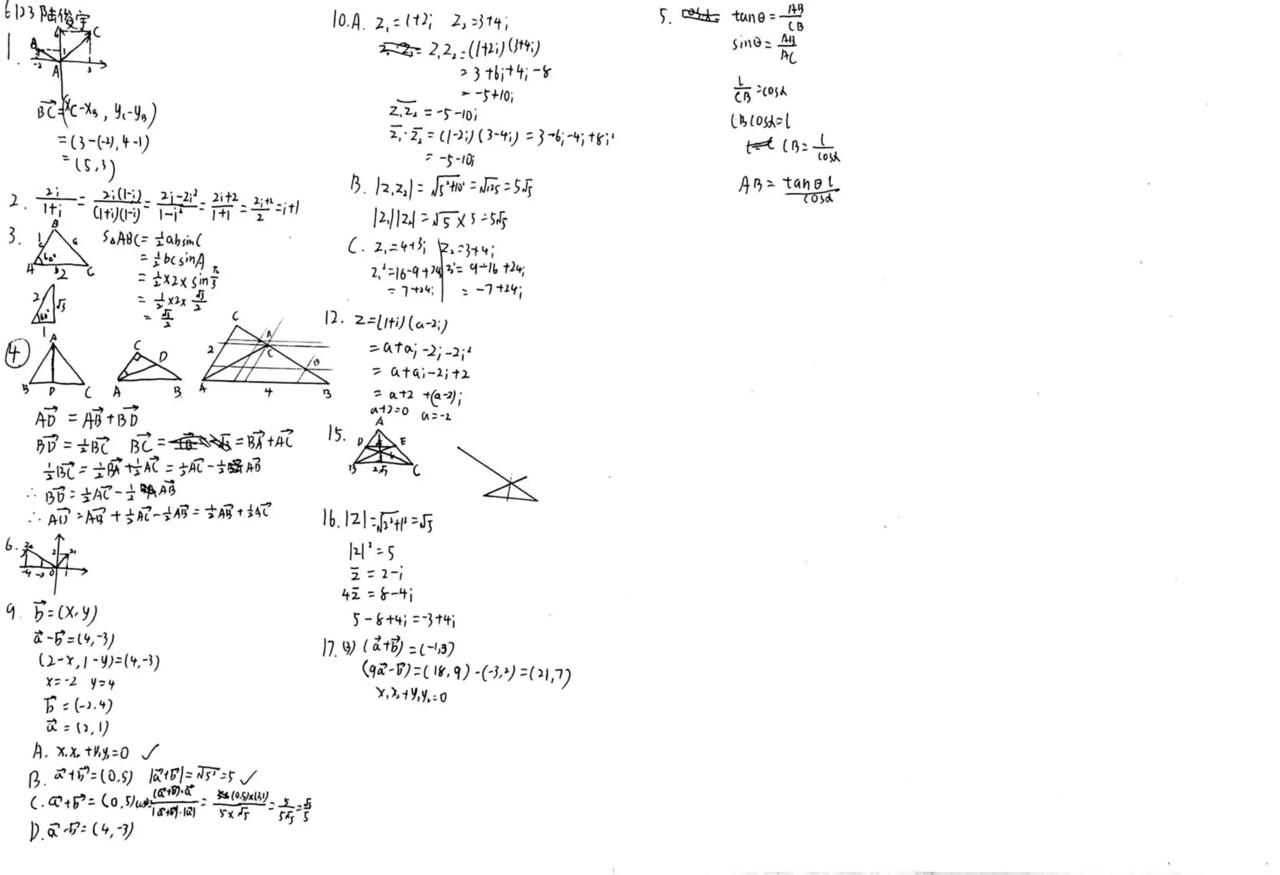 6123 陆俊宇
1.
B C A 4 1 -2 3
BC→=(x_C-x_B, y_C-y_B)
=(3-(-2), 4-1)
=(5,3)
2. 2i/(1+i) = 2i(1-i)/((1+i)(1-i)) = (2i-2i²)/(1-i²) = (2i+2)/(1+1) = (2i+2)/2 = i+1
3.
S△ABC=½absinC
=½bcsinA
=½×2×sin π/3
=½×2×√3/2
=√3/2
④
AD→ = AB→+BD→
BD→=½BC→ BC→= =BA→+AC→
½BC→=½BA→+½AC→=½AC→-½AB→
∴ BD→=½AC→-½AB→
∴ AD→=AB→+½AC→-½AB→=½AB→+½AC→
6.
9. b→=(x,y)
a→-b→=(4,-3)
(2-x,1-y)=(4,-3)
x=-2 y=4
b→=(-2,4)
a→=(2,1)
A. x₁x₂+y₁y₂=0 ✓
B. a→+b→=(0,5) |a→+b→|=√5²=5 ✓
C. a→+b→=(0,5) (a→+b→)·a→/(|a→+b→|·|a→|) = (0,5)×(2,1)/(5×√5) = 5/(5√5) = √5/5
D. a→-b→=(4,-3)
10. A. z₁=1+2i z₂=3+4i
z₁z₂=(1+2i)(3+4i)
=3+6i+4i-8
=-5+10i
z̅₁z̅₂=-5-10i
z̅₁·z̅₂=(1-2i)(3-4i)=3-6i-4i+8i²
=-5-10i
B. |z₁z₂|=√(5²+10²)=√125=5√5
|z₁||z₂|=√5×5=5√5
C. z₁=4+3i z₂=3+4i
z₁²=16-9+24i z₂²=9-16+24i
=7+24i =-7+24i
12. z=(1+i)(a-2i)
=a+ai-2i-2i²
=a+ai-2i+2
=a+2+(a-2)i
a+2=0 a=-2
15.
A D E B C
16. |z|=√(2²+1²)=√5
|z|²=5
z̅=2-i
4z̅=8-4i
5-8+4i=-3+4i
17. (a→+b→)=(-1,3)
(9a→-b→)=(18,9)-(-3,2)=(21,7)
x₁x₂+y₁y₂=0
5. tanθ=AB/CB
sinθ=AB/AC
l/CB=cosα
CBcosα=l
CB=l/cosα
AB=tanθ l/cosα